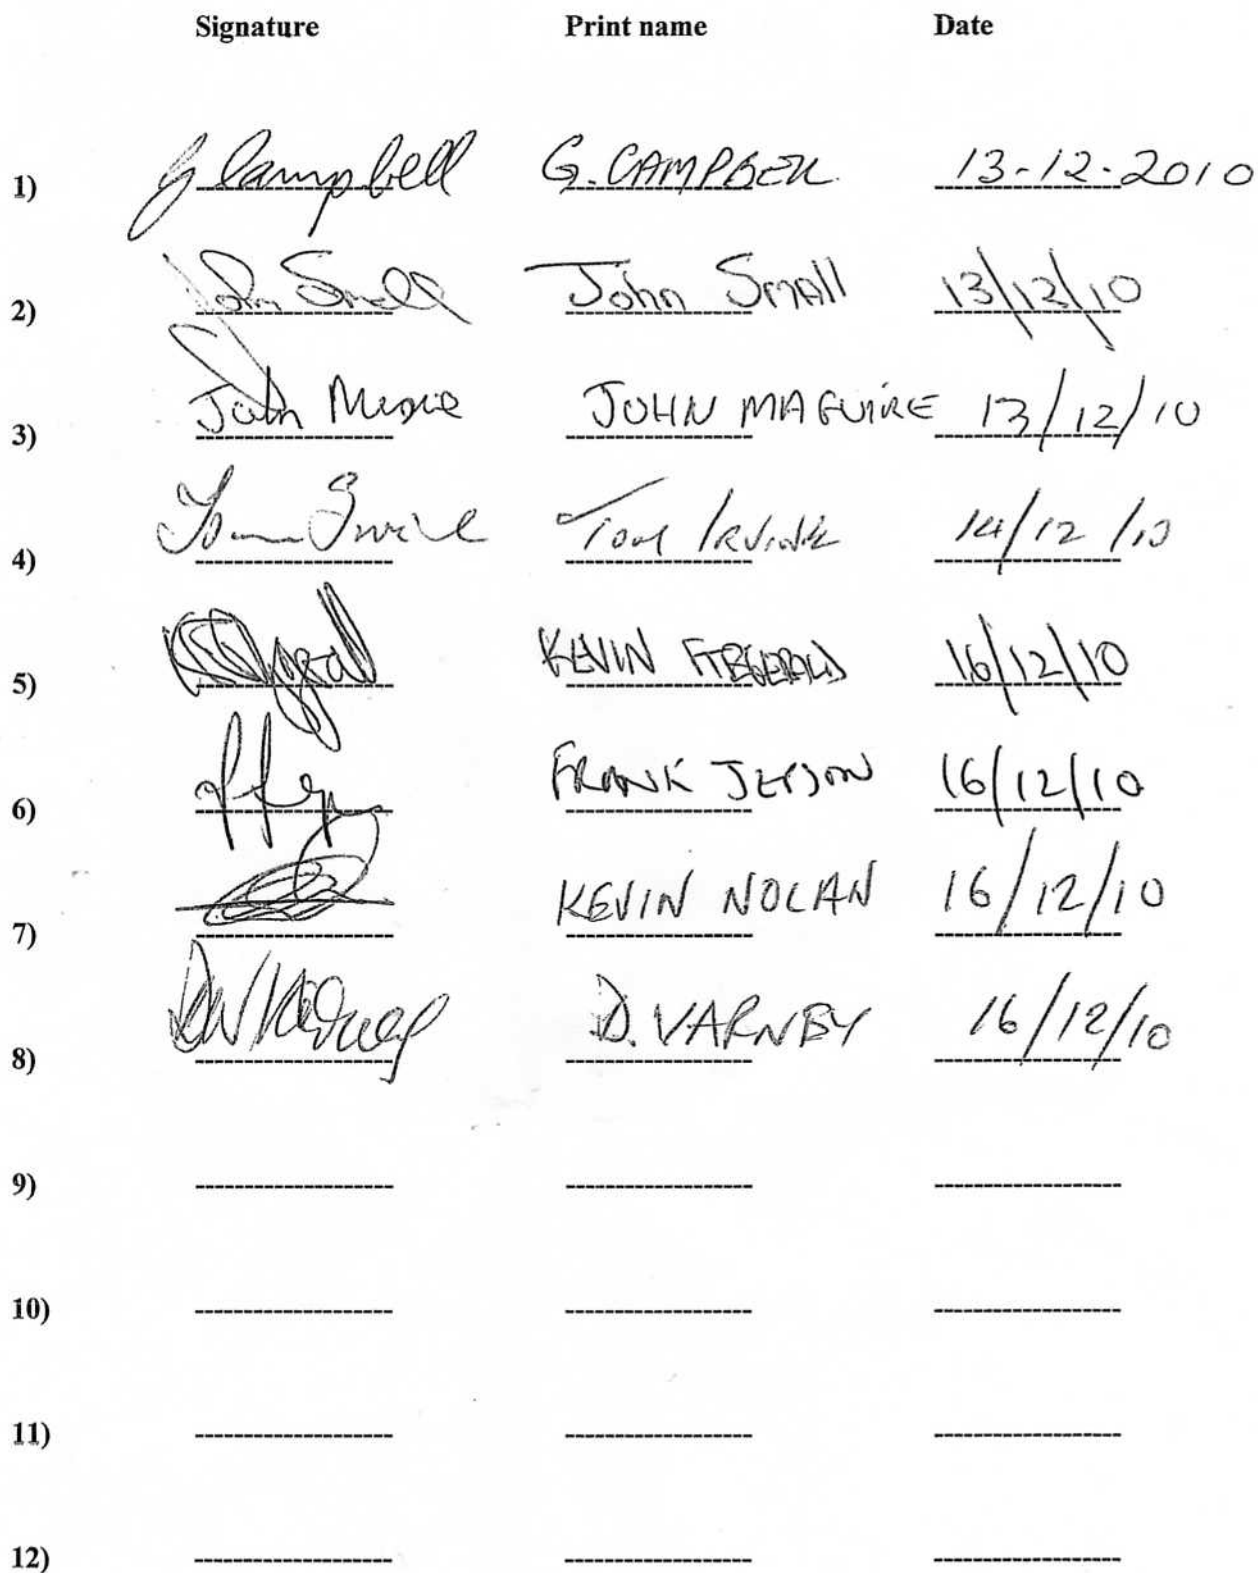 Signature Print name Date
1) G Campbell G. CAMPBELL 13-12-2010
2) John Small John Small 13/12/10
3) John JOHN MAGUIRE 13/12/10
4) Tom Irvine Tom Irvine 14/12/10
5) KEVIN FITZGERALD 16/12/10
6) FRANK JEPSON 16/12/10
7) KEVIN NOLAN 16/12/10
8) D. VARNEY 16/12/10
9)
10)
11)
12)